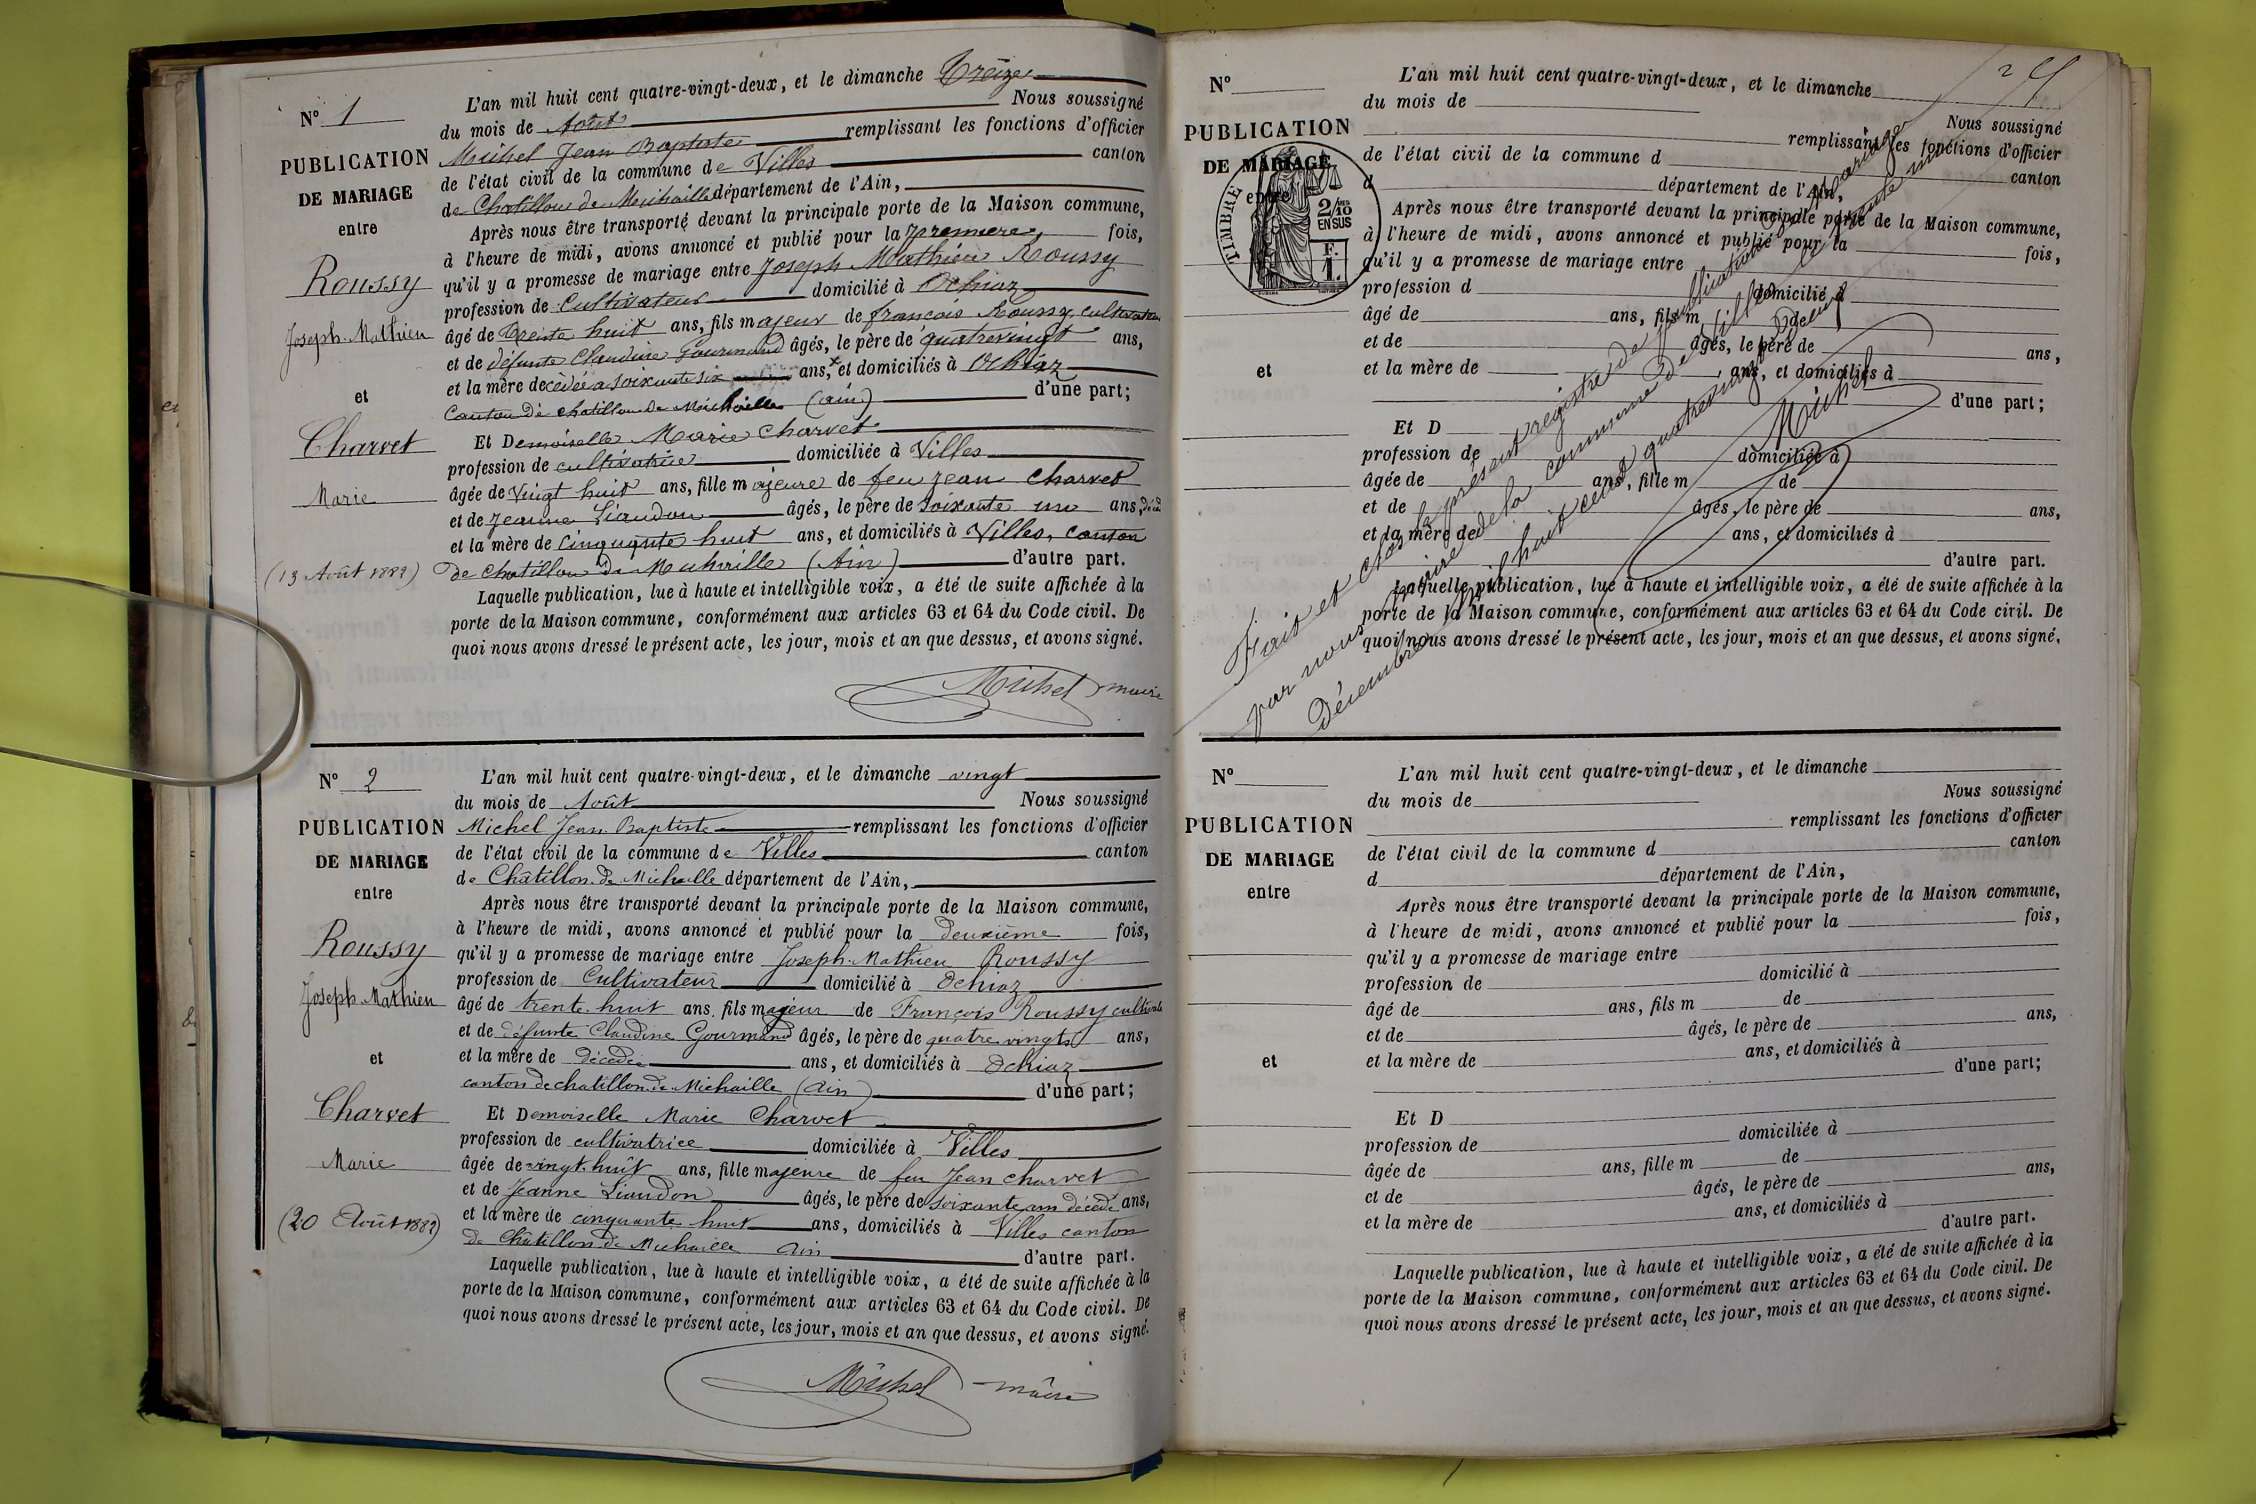 N° 1
PUBLICATION
DE MARIAGE
entre
Roussy
Joseph-Mathieu
et
Charvet
Marie
(13 Août 1882)
L'an mil huit cent quatre-vingt-deux, et le dimanche treize
du mois de Août Nous soussigné
Michel Jean Baptiste remplissant les fonctions d'officier
de l'état civil de la commune de Villes canton
de Chatillon de Michaille département de l'Ain,
Après nous être transporté devant la principale porte de la Maison commune,
à l'heure de midi, avons annoncé et publié pour la premiere fois,
qu'il y a promesse de mariage entre Joseph Mathieu Roussy
profession de Cultivateur domicilié à Ochiaz
âgé de trente huit ans, fils majeur de françois Roussy, cultivateur
et de défunte Claudine Gourmand âgés, le père de quatrevingt ans,
et la mère decédée a soixante six ans, et domiciliés à Ochiaz
Canton de chatillon de Michaille (ain) d'une part;
Et Demoiselle Marie Charvet
profession de cultivatrice domiciliée à Villes
âgée de Vingt huit ans, fille majeure de feu jean charvet
et de jeanne Liaudon âgés, le père de Soixante un ans, décédé
et la mère de Cinquante huit ans, et domiciliés à Villes, canton
de Chatillon de Michaille (Ain) d'autre part.
Laquelle publication, lue à haute et intelligible voix, a été de suite affichée à la
porte de la Maison commune, conformément aux articles 63 et 64 du Code civil. De
quoi nous avons dressé le présent acte, les jour, mois et an que dessus, et avons signé.
Michel maire
N° 2
PUBLICATION
DE MARIAGE
entre
Roussy
Joseph-Mathieu
et
Charvet
Marie
(20 Août 1882)
L'an mil huit cent quatre-vingt-deux, et le dimanche vingt
du mois de Août Nous soussigné
Michel Jean Baptiste remplissant les fonctions d'officier
de l'état civil de la commune de Villes canton
de Châtillon de Michaille département de l'Ain,
Après nous être transporté devant la principale porte de la Maison commune,
à l'heure de midi, avons annoncé et publié pour la deuxième fois,
qu'il y a promesse de mariage entre Joseph-Mathieu Roussy
profession de Cultivateur domicilié à Ochiaz
âgé de trente huit ans, fils majeur de François Roussy cultivate
et de défunte Claudine Gourmand âgés, le père de quatre vingts ans,
et la mère de décédée ans, et domiciliés à Ochiaz
canton de chatillon de Michaille (ain) d'une part;
Et Demoiselle Marie Charvet
profession de cultivatrice domiciliée à Villes
âgée de vingt-huit ans, fille majeure de feu Jean charvet
et de Jeanne Liaudon âgés, le père de soixante un décédé ans,
et la mère de cinquante huit ans, domiciliés à Villes canton
de Châtillon de Michaille Ain d'autre part.
Laquelle publication, lue à haute et intelligible voix, a été de suite affichée à la
porte de la Maison commune, conformément aux articles 63 et 64 du Code civil. De
quoi nous avons dressé le présent acte, les jour, mois et an que dessus, et avons signé.
Michel maire
N°
PUBLICATION
DE MARIAGE
entre
et
TIMBRE
2/10
EN SUS
F.
1.
L'an mil huit cent quatre-vingt-deux, et le dimanche
du mois de
Nous soussigné
remplissant les fonctions d'officier
de l'état civil de la commune d canton
d département de l'Ain,
Après nous être transporté devant la principale porte de la Maison commune,
à l'heure de midi, avons annoncé et publié pour la fois,
qu'il y a promesse de mariage entre
profession d domicilié à
âgé de ans, fils m de
et de âgés, le père de ans,
et la mère de ans, et domiciliés à
d'une part;
Et D
profession de domiciliée à
âgée de ans, fille m de
et de âgés, le père de ans,
et la mère de ans, et domiciliés à
d'autre part.
Laquelle publication, lue à haute et intelligible voix, a été de suite affichée à la
porte de la Maison commune, conformément aux articles 63 et 64 du Code civil. De
quoi nous avons dressé le présent acte, les jour, mois et an que dessus, et avons signé.
Fait et clos le présent registre de publications de Mariage
par nous maire de la commune de Villes le trente un
Décembre mil huit cent quatrevingt Deux
Michel
N°
PUBLICATION
DE MARIAGE
entre
et
L'an mil huit cent quatre-vingt-deux, et le dimanche
du mois de
Nous soussigné
remplissant les fonctions d'officier
de l'état civil de la commune d canton
d département de l'Ain,
Après nous être transporté devant la principale porte de la Maison commune,
à l'heure de midi, avons annoncé et publié pour la fois,
qu'il y a promesse de mariage entre
profession de domicilié à
âgé de ans, fils m de
et de âgés, le père de ans,
et la mère de ans, et domiciliés à
d'une part;
Et D
profession de domiciliée à
âgée de ans, fille m de
et de âgés, le père de ans,
et la mère de ans, et domiciliés à
d'autre part.
Laquelle publication, lue à haute et intelligible voix, a été de suite affichée à la
porte de la Maison commune, conformément aux articles 63 et 64 du Code civil. De
quoi nous avons dressé le présent acte, les jour, mois et an que dessus, et avons signé.